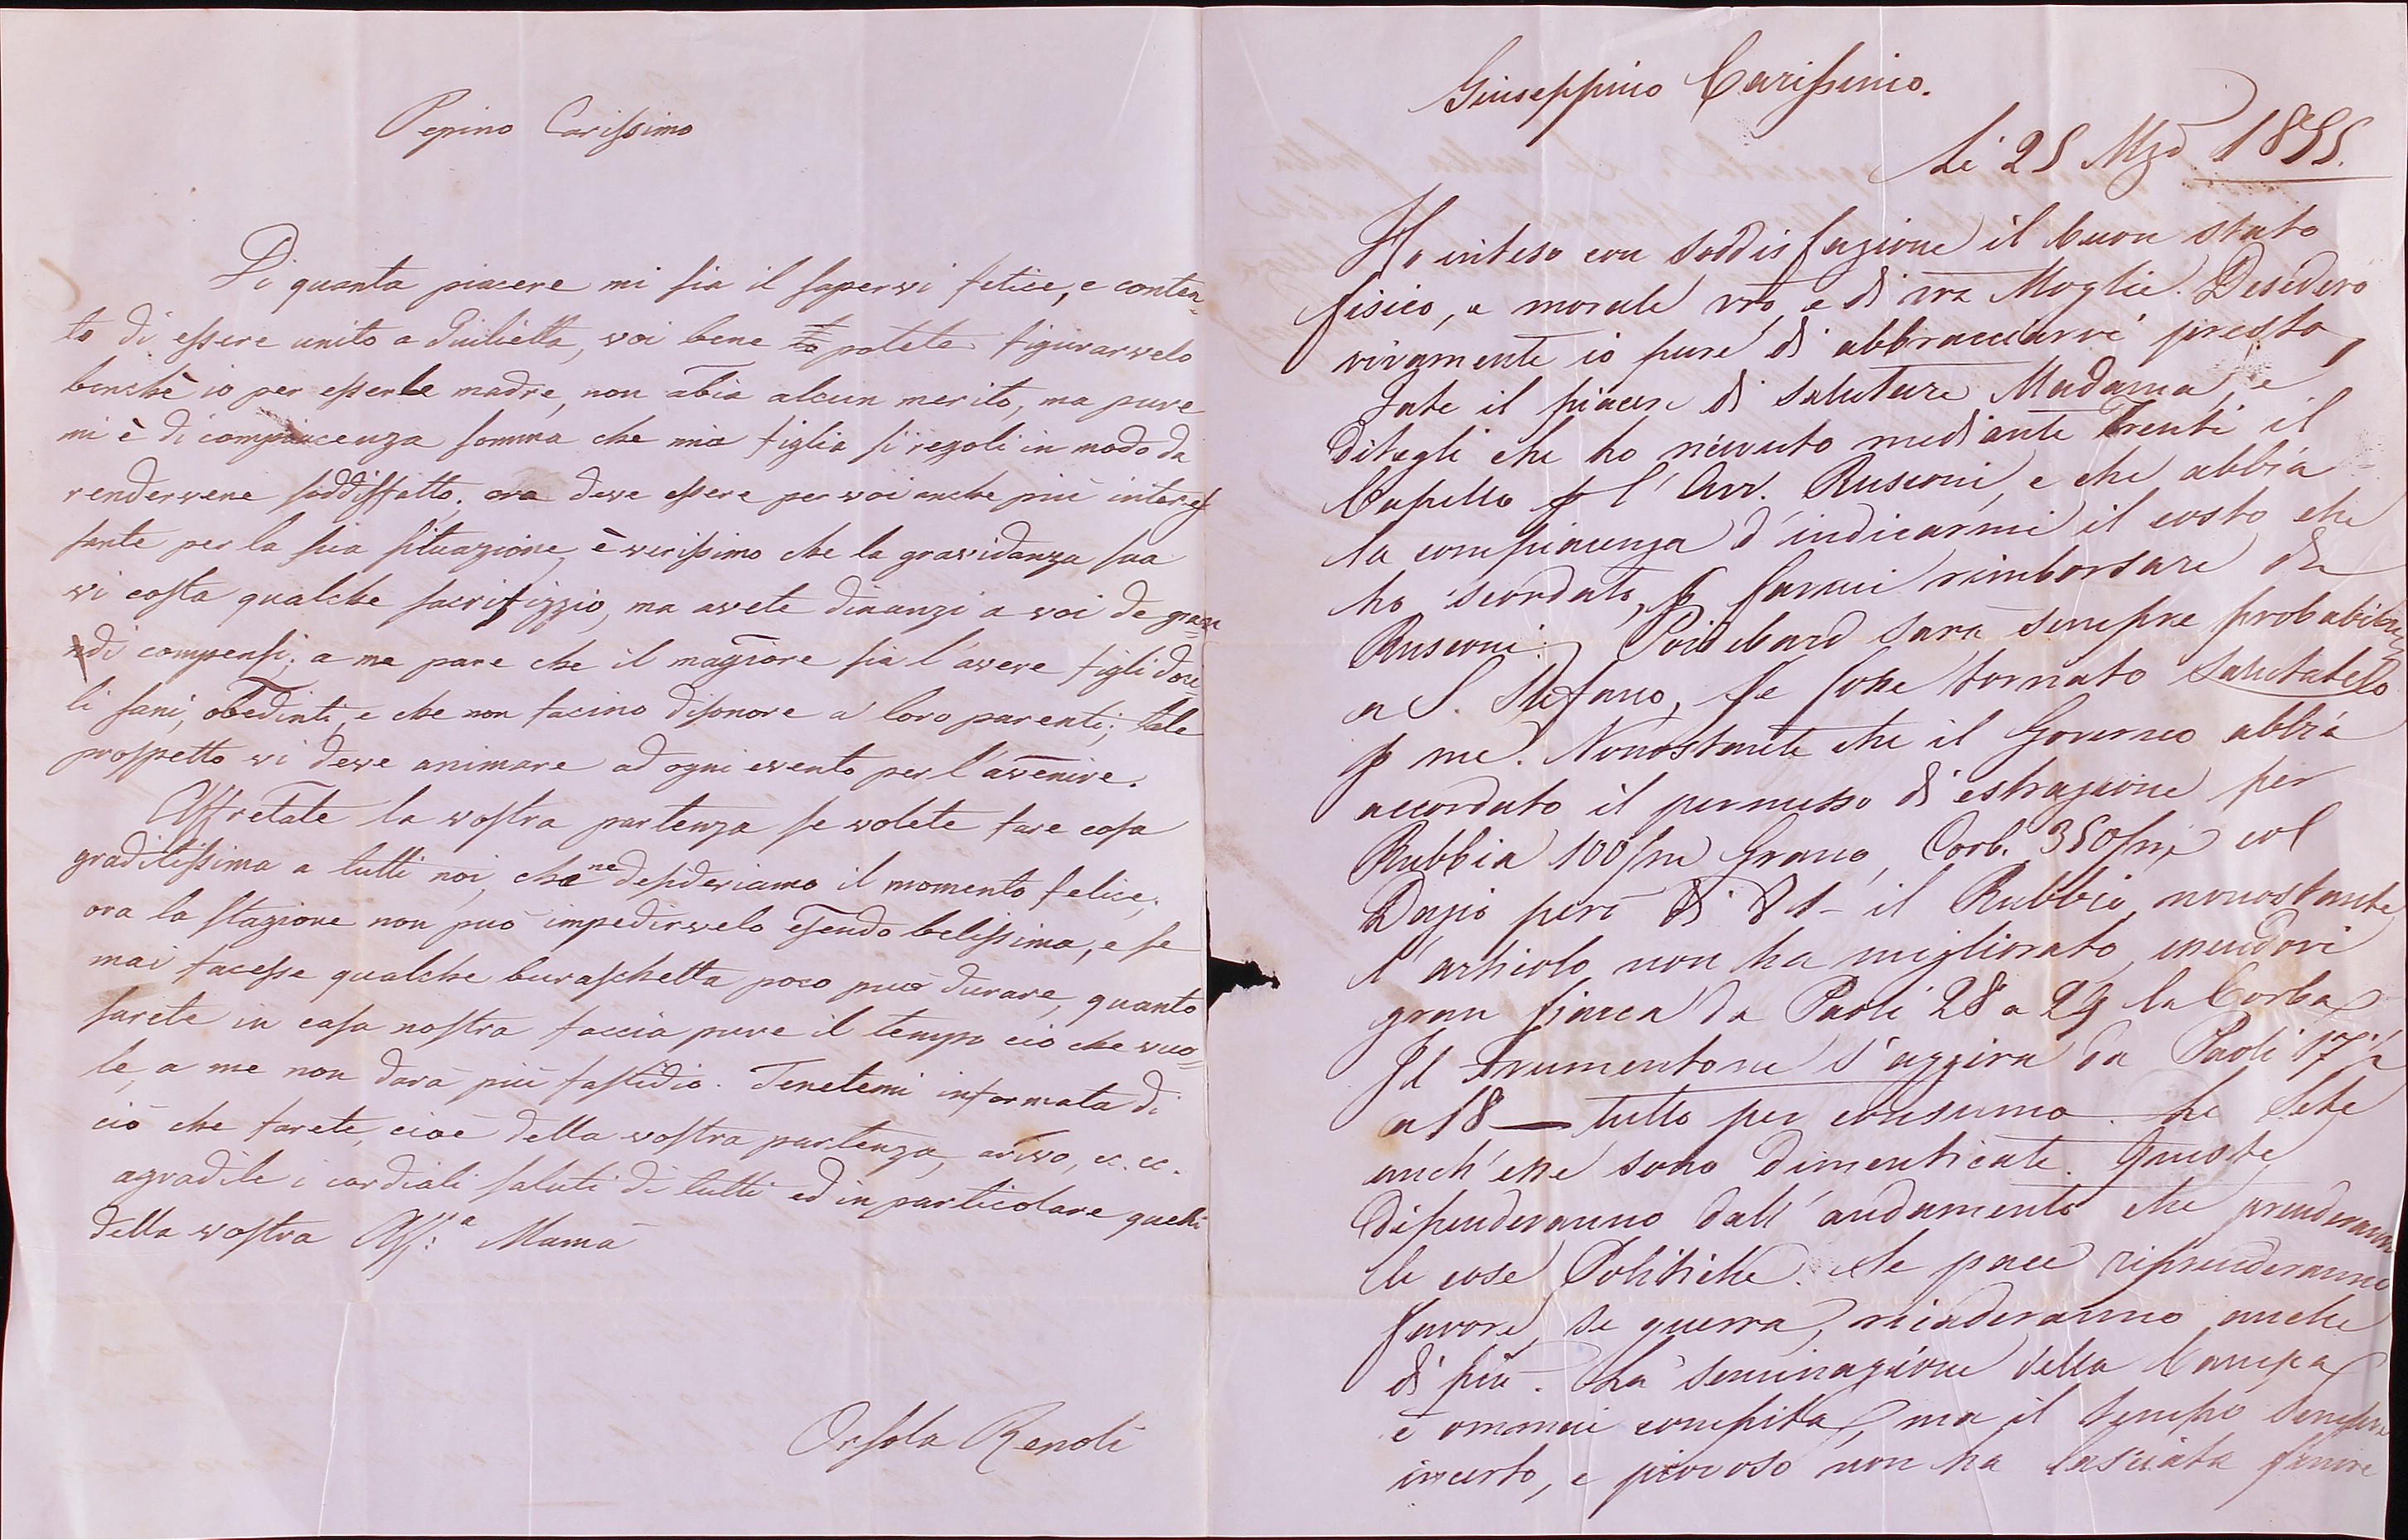 Pepino Carissimo
Di quanta piacere mi sia il sapervi felice, e conten-
to di essere unito a Giulietta, voi bene potete figurarvelo
benchè io per esserle madre, non abia alcun merito, ma pure
mi è di compiacenza somma che mia figlia si regoli in modo da
rendervene soddisfatto. ora deve essere per voi anche più interes
sante per la sua situazione, è verissimo che la gravidanza sua
vi costa qualche sacrifizzio, ma avete dinanzi a voi de gran
ndi compensi; a me pare che il magiore sia l'avere figli doci-
li sani, obedinti, e che non facino disonore a' loro parenti; tale
prospetto vi deve animare ad ogni evento per l'avenire.
Affretate la vostra partenza se volete fare cosa
graditissima a tutti noi, che ne desideriamo il momento felice;
ora la stagione non può impedirvelo esendo belissima, e se
mai facesse qualche buraschetta poco può durare, quanto
sarete in casa nostra faccia pure il tempo ciò che vuo-
le, a me non darà più fastidio. Tenetemi informata di
ciò che farete, cioè della vostra partenza, arivo, ec. ec.
agradite i cordiali saluti di tutti ed in particolare quelli
della vostra Aff:a Mamà
Orsola Renoli
Giuseppino Carissimo.
Li 25 Mzo 1855.
Ho inteso con soddisfazione il buon stato
fisico, e morale vro, e di vra Moglie. Desidero
vivamente io pure di abbracciarvi presto,
Fate il piacere di salutare Madama, e
ditegli che ho ricevuto mediante Trenti il
Capello p l'Avv. Rusconi, e che abbia
la compiacenza d'indicarmi il costo che
ho scordato, p farmi rimborsare da
Rusconi. sarà sempre probabilme
a S. Stefano, se fosse tornato salutatelo
p me. Nonostante che il Governo abbia
accordato il permesso di estrazione per
Rubbia 100/m Grano, Corb. 350/m, col
Dazio però di 1- il Rubbio, nonostante
l'articolo non ha migliorato, essendovi
gran fiacca da Paoli 28 a 29 la Corba
Il Frumentone s'aggira da Paoli 17 1/2
a 18 — tutto per consumo. Le Sete
anch'esse sono dimenticate. Queste
dipenderanno dall'andamento che prenderanno
le cose Politiche. Se pace riprenderanno
favore, se guerra, ricaderanno anche
di più. La seminagione della Canepa
è ommai compita, ma il tempo sempre
incerto, e piovoso non ha lasciata finire